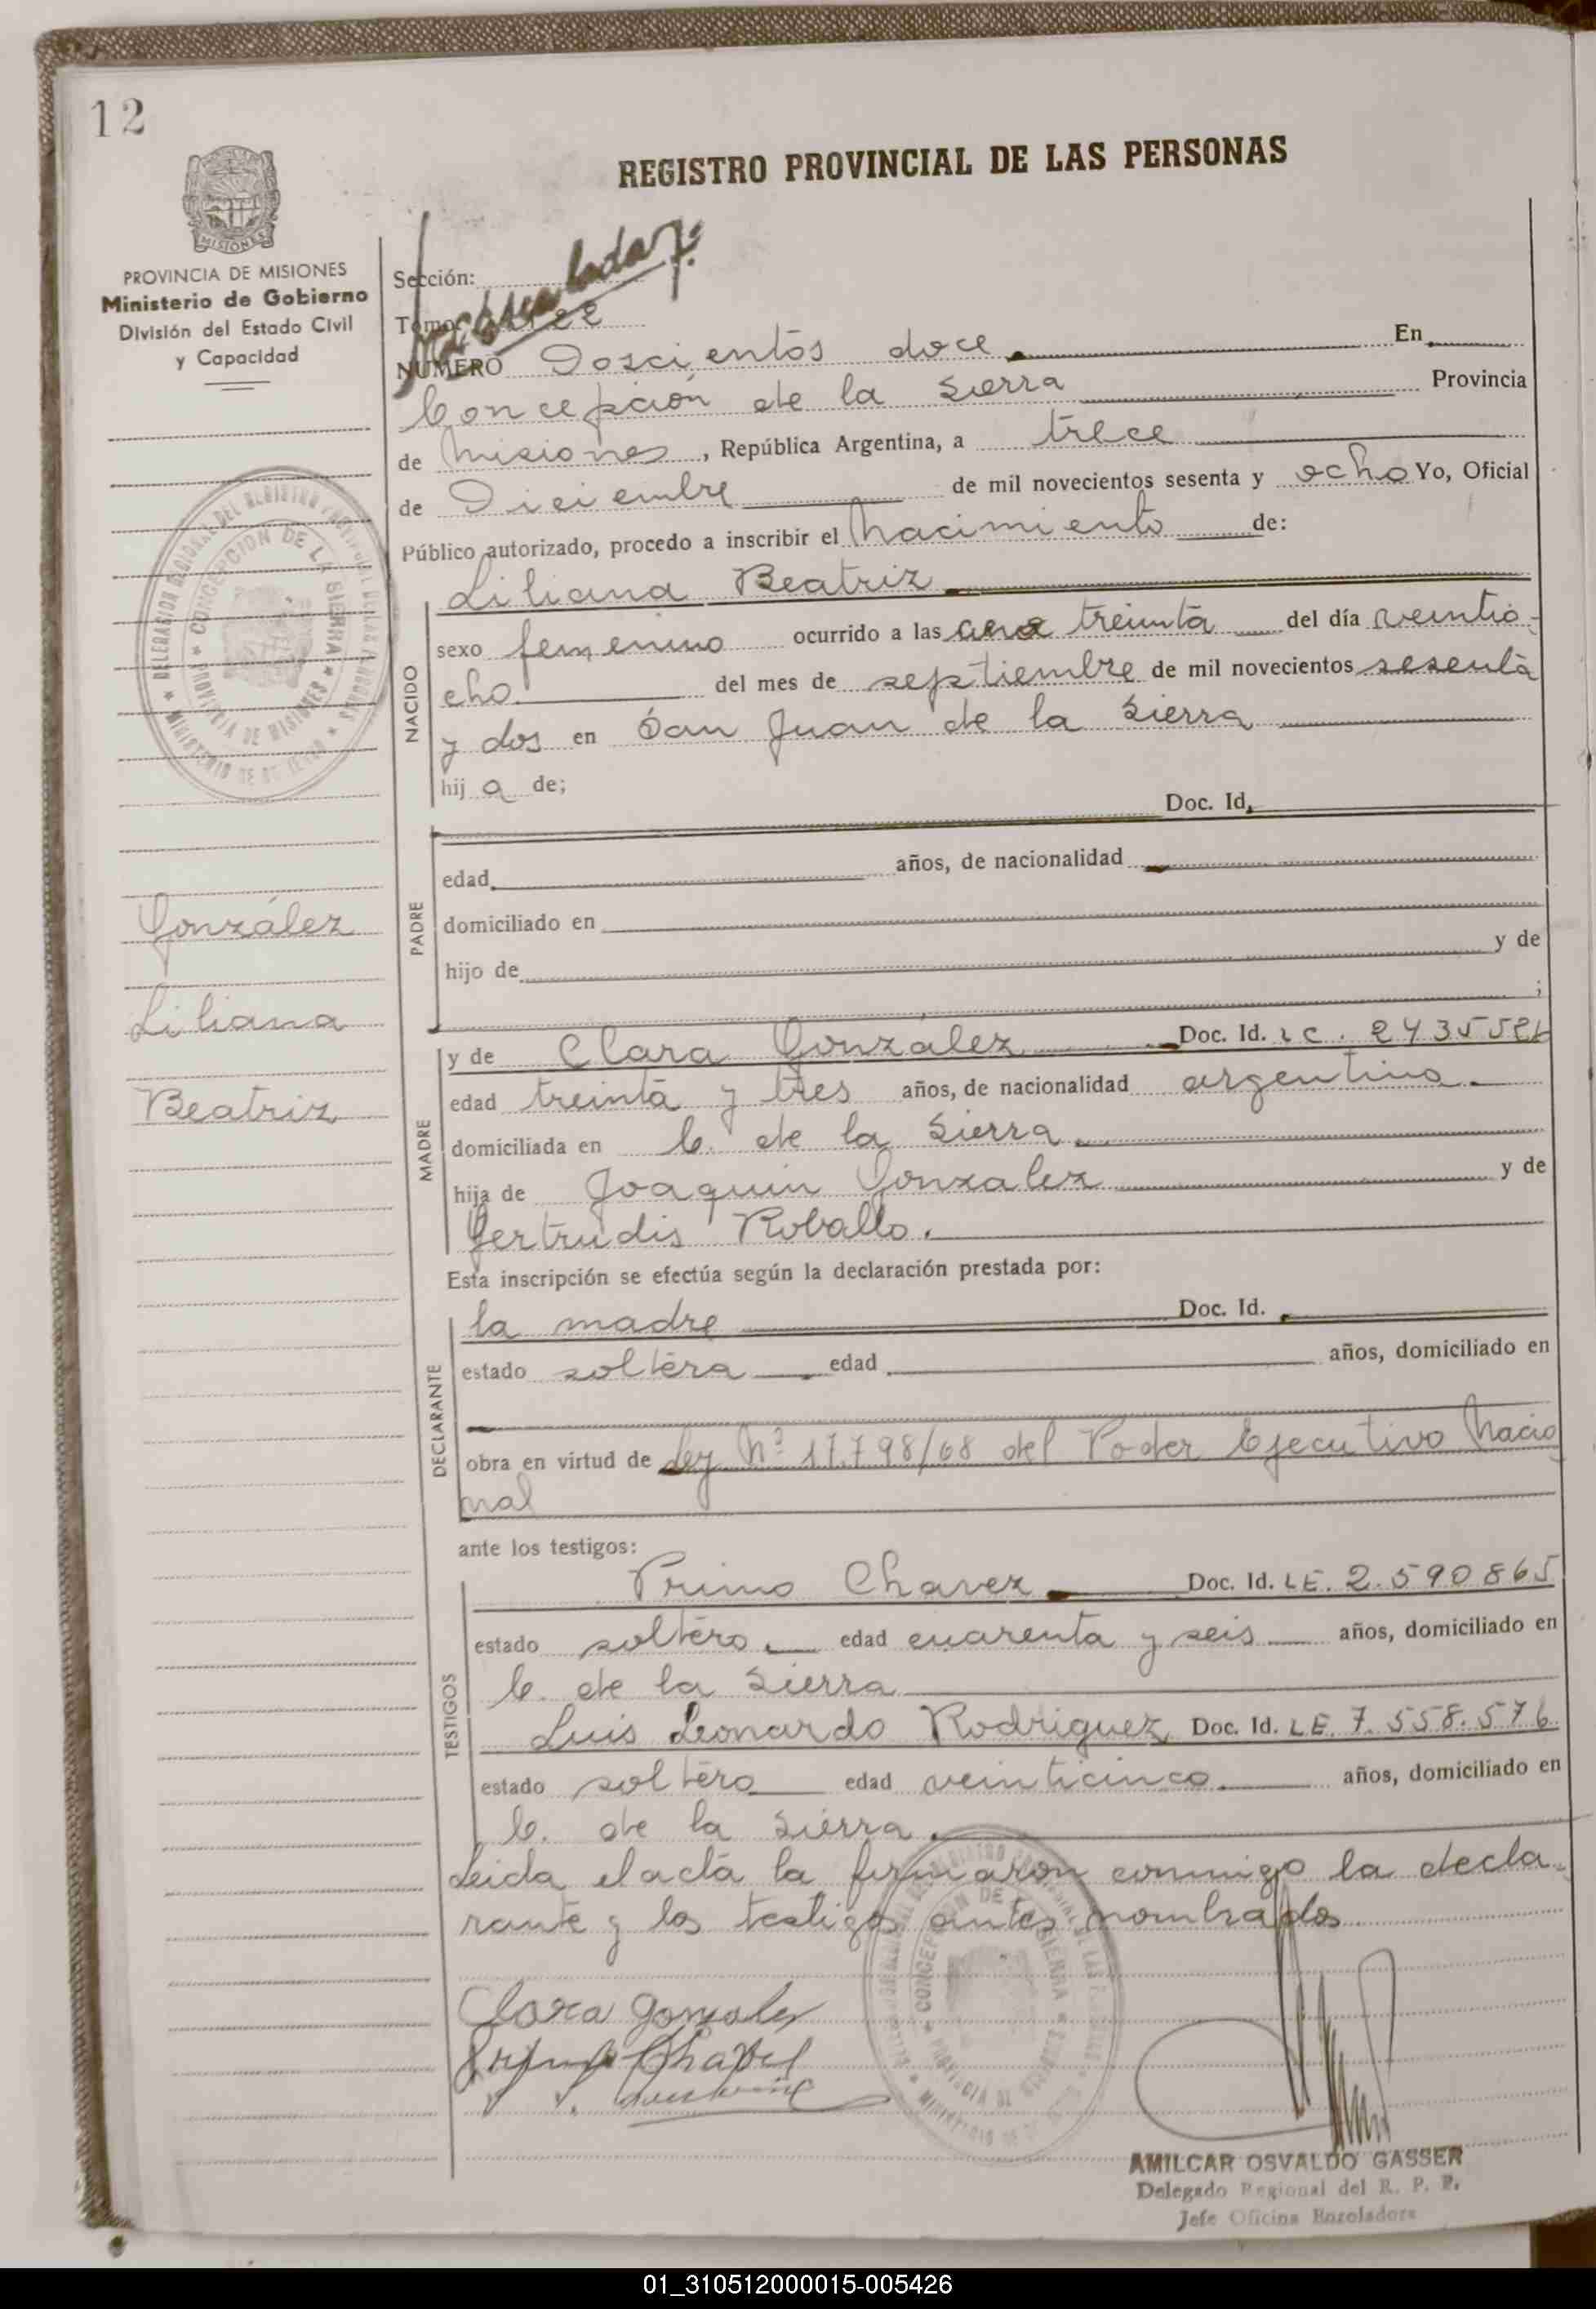 12
REGISTRO PROVINCIAL DE LAS PERSONAS
MISIONES
PROVINCIA DE MISIONES
Ministerio de Gobierno
División del Estado Civil
y Capacidad
Sección:
Tomo
NUMERO Doscientos doce En
Concepción de la Sierra Provincia
de Misiones, República Argentina, a trece
de Diciembre de mil novecientos sesenta y ocho Yo, Oficial
Público autorizado, procedo a inscribir el Nacimiento de:
Liliana Beatriz
NACIDO
sexo femenino ocurrido a las una treinta del día veintio-
cho del mes de septiembre de mil novecientos sesenta
y dos en San Juan de la Sierra
hij a de;
PADRE
Doc. Id.
edad años, de nacionalidad
domiciliado en
hijo de y de
;
González
Liliana
Beatriz
MADRE
y de Clara González Doc. Id. LC. 2435526
edad treinta y tres años, de nacionalidad argentina
domiciliada en C. de la Sierra
hija de Joaquin Gonzalez y de
Gertrudis Roballo.
Esta inscripción se efectúa según la declaración prestada por:
DECLARANTE
la madre Doc. Id.
estado soltera edad años, domiciliado en
obra en virtud de Ley Nº 17.798/68 del Poder Ejecutivo Nacio
nal
ante los testigos:
TESTIGOS
Primo Chavez Doc. Id. LE. 2.590865
estado soltero edad cuarenta y seis años, domiciliado en
C. de la Sierra
Luis Leonardo Rodriguez Doc. Id. LE. 7.558.576
estado soltero edad veinticinco años, domiciliado en
C. de la Sierra.
Leida el acta la firmaron conmigo la decla-
rante y los testigos antes nombrados
Clara Gonzalez
AMILCAR OSVALDO GASSER
Delegado Regional del R. P. P.
Jefe Oficina Enroladora
01_310512000015-005426